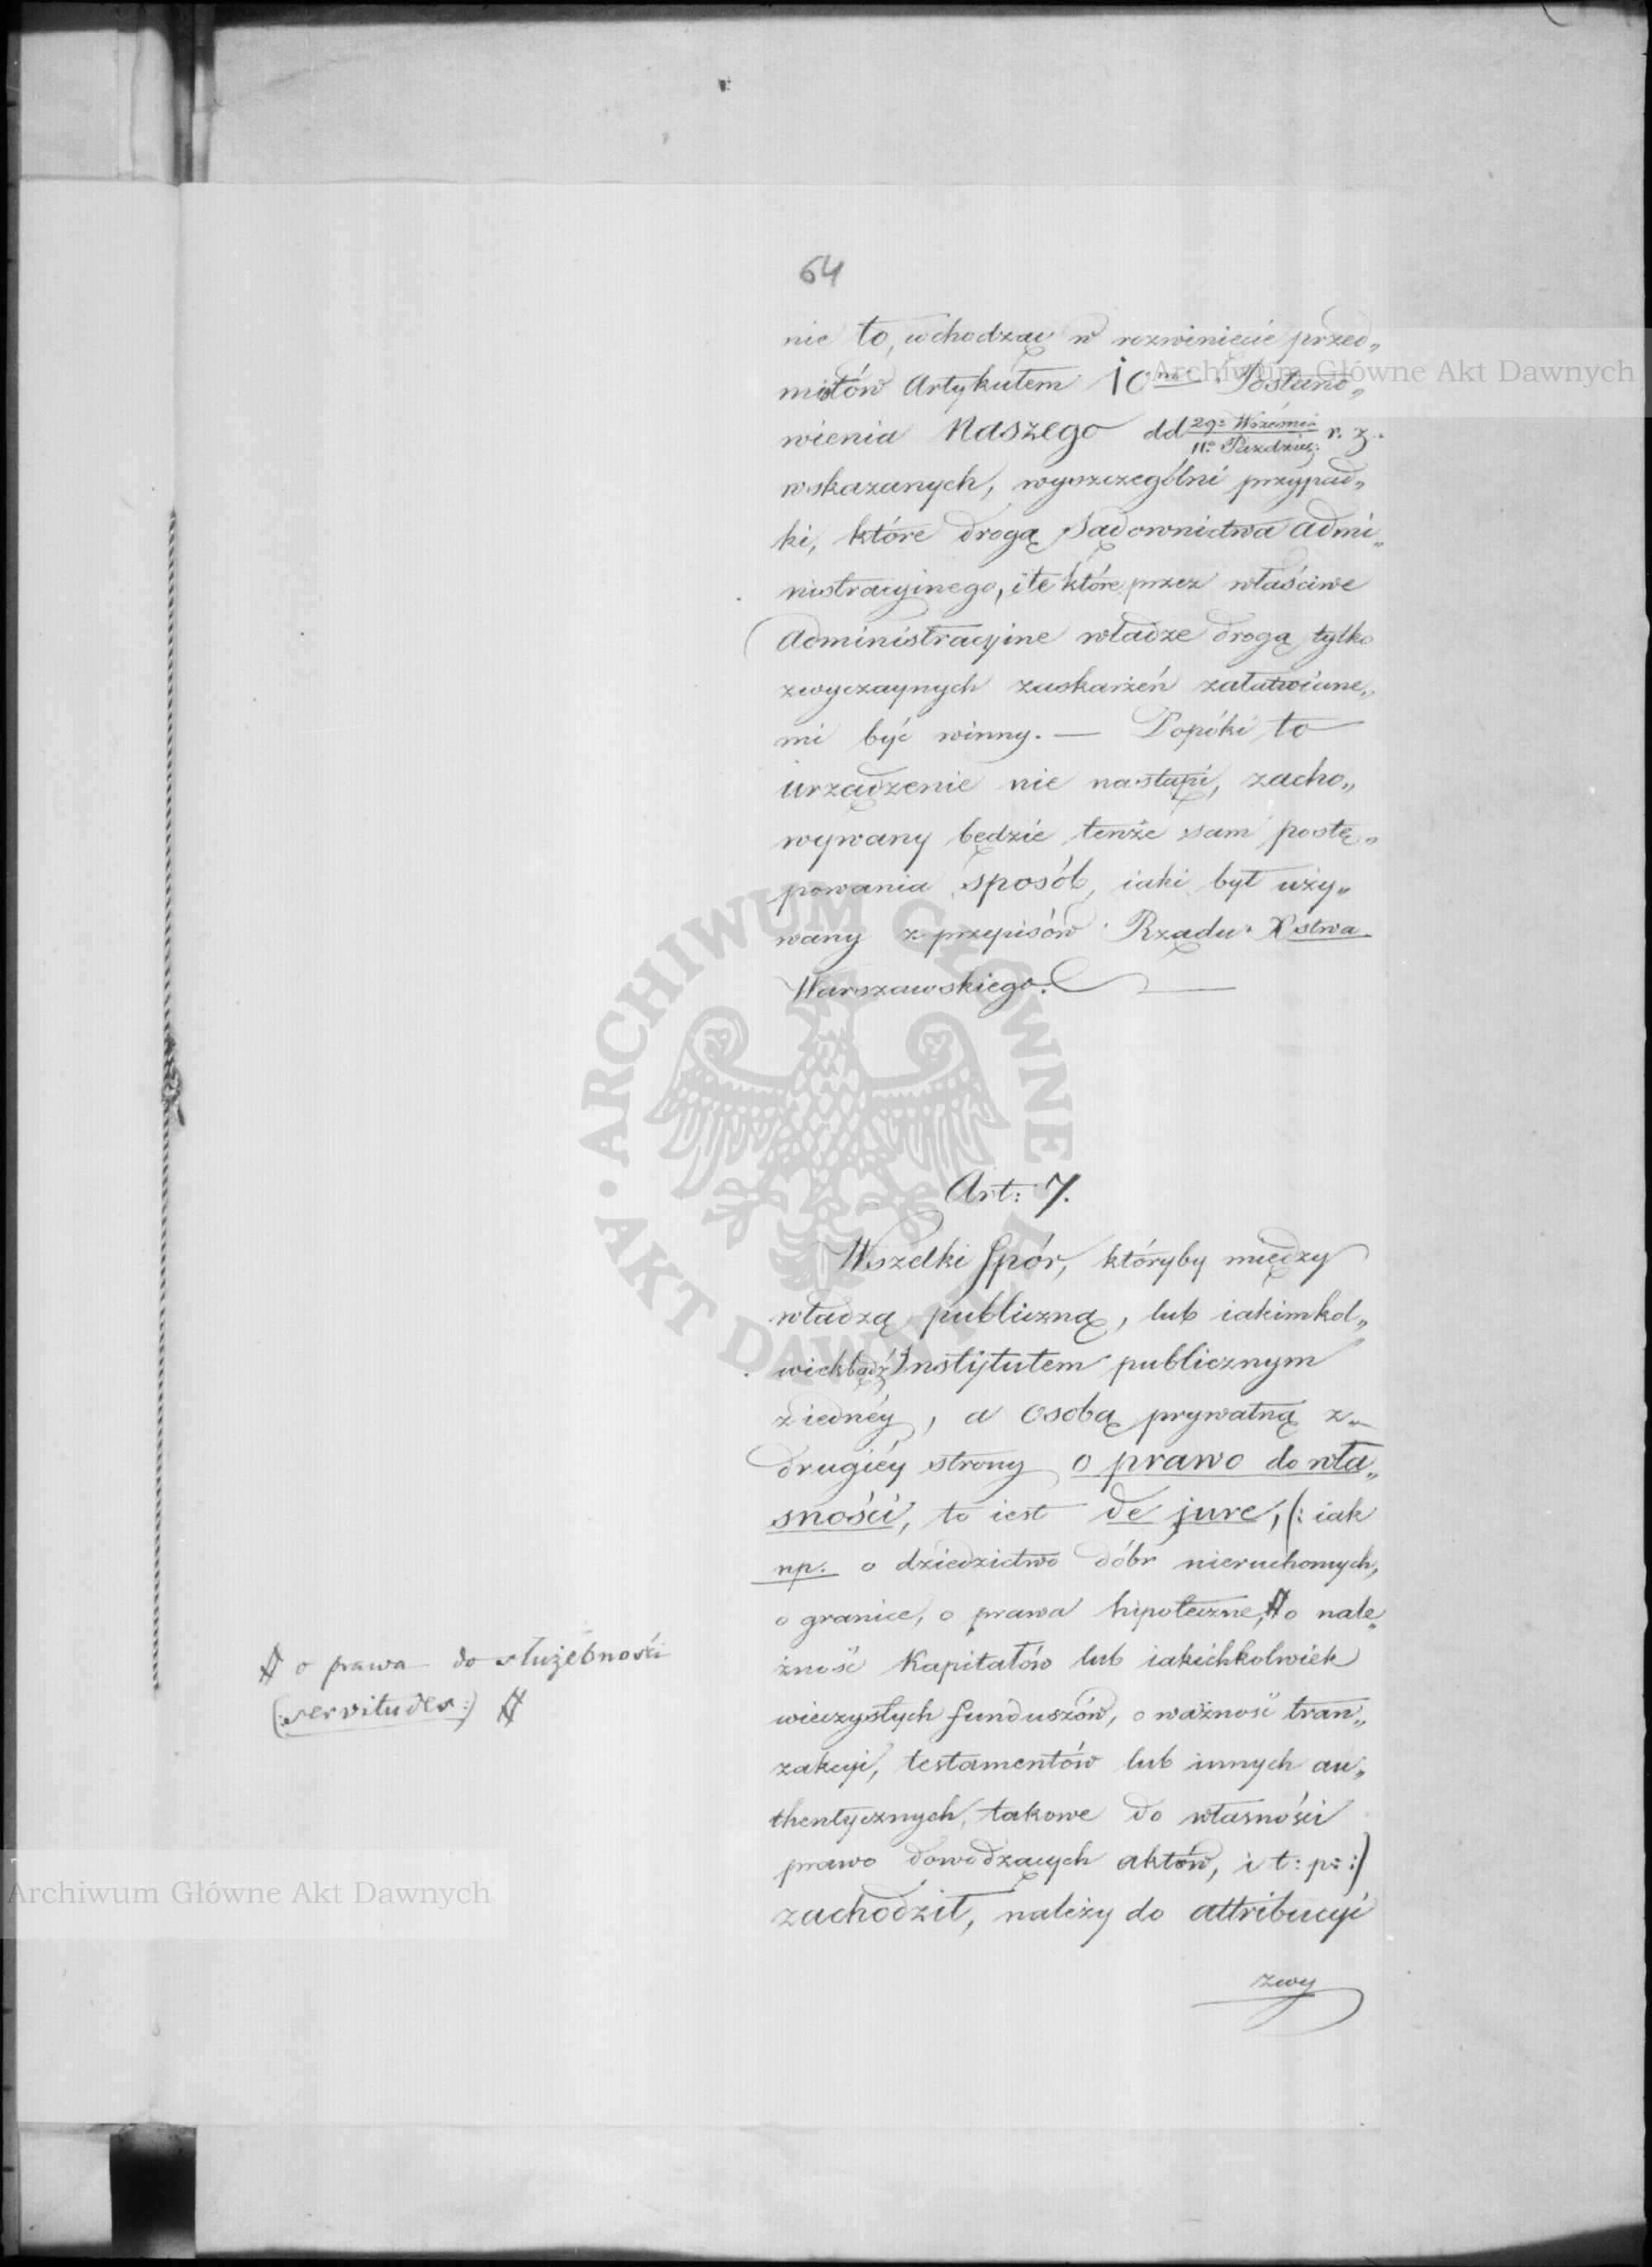 64
nie to, wchodząc w rozwinięcie przed„
miotów Artykułem 10mc Postano„
wienia Naszego dd 29º Września r. z.
11º Paździer:
wskazanych, wyszczególni przypad„
ki, które drogą Sądownictwa admi„
nistracyinego, i te które przez właściwe
Administracyine władze drogą tylko
zwyczaynych zaskarżeń załatwione„
mi być winny. — Dopóki to
urządzenie nie nastąpi, zacho„
wywany będzie tenże sam postę„
powania sposób, iaki był uży„
wany z przepisów Rządu Xstwa
Warszawskiego.
Art: 7.
Wszelki spór, któryby między
władzą publiczną, lub iakimkol„
wiekbądź Instytutem publicznym
z iednéy, a osobą prywatną z„
drugiéy strony o prawo do wła„
sności, to iest de jure, (: iak
np. o dziedzictwo dóbr nieruchomych,
o granice, o prawa hipoteczne, # o nale„
żność Kapitałów lub iakichkolwiek
wieczystych funduszów, o ważność tran„
zakcyi, testamentów lub innych au„
thentycznych, takowe do własności
prawo dowodzących aktów, i t: p: :)
zachodził, należy do attribucyi
zwy
# o prawa do służebności
(:servitudes:) #
Archiwum Główne Akt Dawnych
Archiwum Główne Akt Dawnych
ARCHIWUM GŁÓWNE AKT DAWNYCH